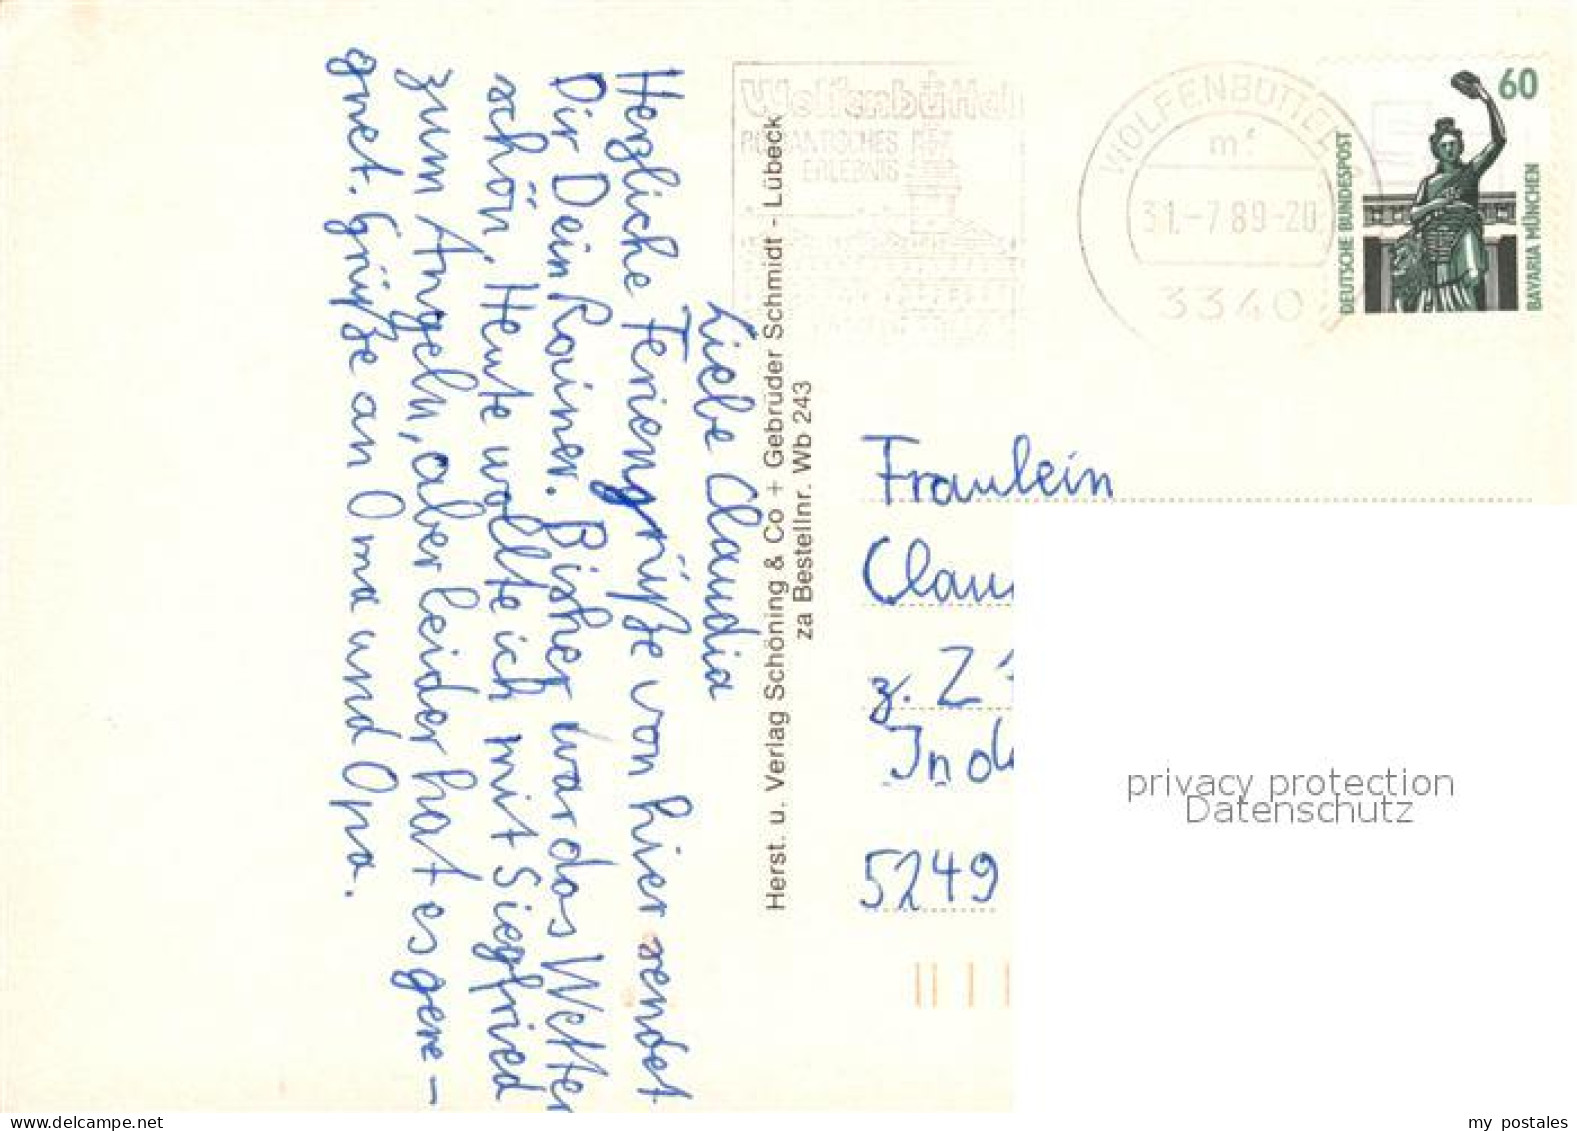 Liebe Claudia
Herzliche Feriengrüße von hier sendet
Dir Dein Rainer. Bisher war das Wetter
schön, Heute wollte ich mit Siegfried
zum Angeln, aber leider hat es gere-
gnet. Grüße an Oma und Opa.
Herst. u. Verlag Schöning & Co + Gebrüder Schmidt - Lübeck
za Bestellnr. Wb 243
Wolfenbüttel
ROMANTISCHES
ERLEBNIS
WOLFENBÜTTEL
mf
31.-7.89-20
3340
60
DEUTSCHE BUNDESPOST
BAVARIA MÜNCHEN
Fraulein
Clau
z. Z
Ind
5249
privacy protection
Datenschutz
www.delcampe.net
my postales